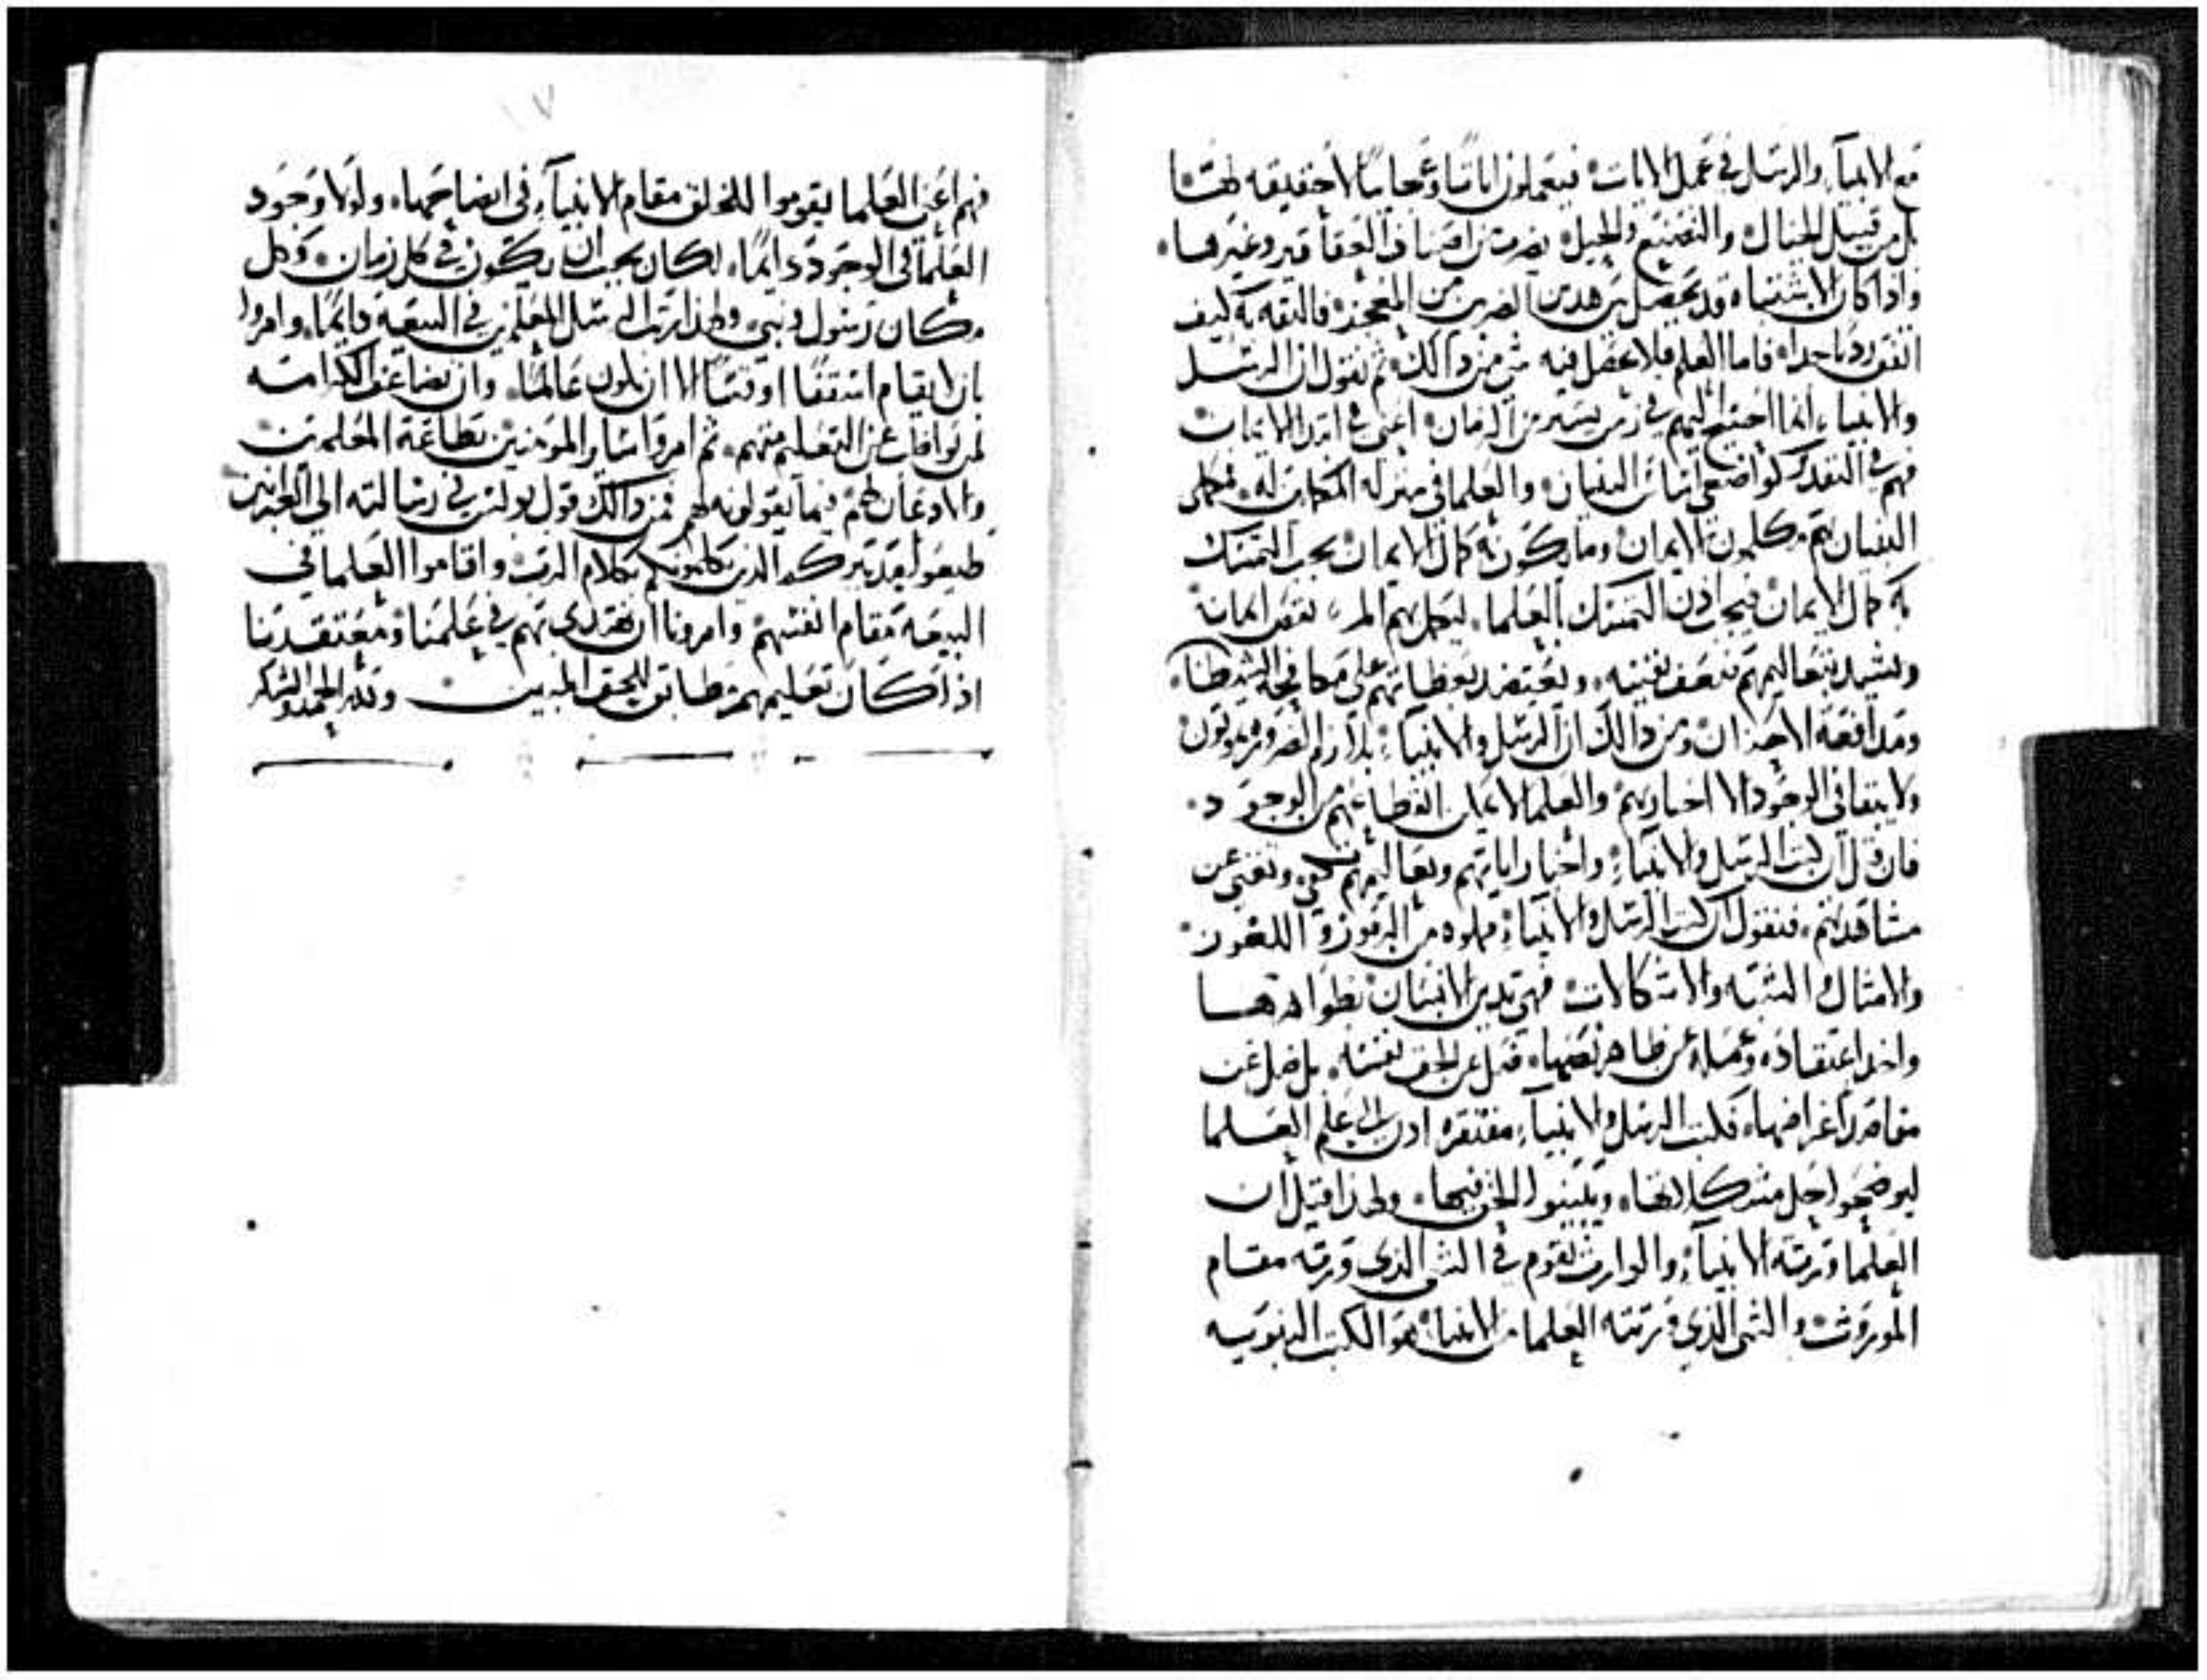 مع الانبيآء والرسل في عمل الايات فيعملون اياتًا وعجايبًا لا حقيقه لها
بل من قبيل الخيال والتصنيع والحيل بضرب من اصناف العقاقير وغيرها
واذا كان الاشتباه قد يحصل من هدين الضربين المعجزه فالثقه به ليف
جدا فاما العلم فلا يحصل فيه شي من دالك ثم نقول ان الرسل
والانبياء انما احتيج اليهم في زمن يسير من الزمان اعني في ابتدا الايمان
فهم في التقدير كواضعي اساس البنيان والعلما في منزله المكملين له فمكملي
البنيان هم مكملون الايمان وما يكون به كمال الايمان يجب التمسك
به كمال الايمان فيجب اذن التمسك بالعلما ليكمل بهم المر نقص ايمانه
ويشيد بتعاليمهم ضعف نفسه ويعتضد بعظاتهم علي مكافحة الشيطان
ومدافعة الاحزان ومن دالك ان الرسل والانبياء يموتون
ولا يبقا في الوجود الا اخبارهم والعلما لا يمكن انقطاعهم من الوجود
فان قيل ان كتب الرسل والانبياء واخبار اياتهم وتعاليمهم تكفي وتغني عن
مشاهدتهم فنقول ان كتب الرسل والانبياء مملوه من الرموز واللغوز
والامثال المشتبه والاشكالات فمتي تدين الانسان بظواهرها
واخد اعتقاده وعمله من ظاهر نصها ضل عن الحق نفسه بل ضل عن
مقاصد اغراضها فكتب الرسل والانبيآء مفتقره ادن الى علم العلما
ليوضحوا حل مشكلاتها ويبينوا الحق فيها ولهذا قيل ان
العلما ورثة الانبيآء والوارث يقوم في الشي الذي ورثه مقام
الموروث والشي الذي ورثته العلما من الانبياء هو الكتب النبويه
١٧
فهم اعني العلما يقوموا للخلق مقام الانبيآء في ايضاحها ولولا وجود
العلما في الوجود دايمًا لكان يجب ان يكون في كل زمان وكل
مكان رسول ونبي ولهذا رتب الرسل المعلمين في البيعه دايمًا وامروا
بان لا يقام اسقفًا او قسًا الا ان يكون عالمًا وان تضاعف الكرامه
لمن تعلم منهم ثم امروا ساير المومنين بطاعة المعلمين
والادعان لهم فيما يقولونه لهم فمن دالك قول بولس في رسالته الي العبرانيين
طيعوا مدبريكم الذين كلموكم بكلام الرب واقاموا العلما في
البيعه مقام انفسهم وامرونا ان نقتدي بهم في علمنا ومعتقدنا
اذا كان تعليمهم مطابق للحق المبين ولله الحمد والشكر